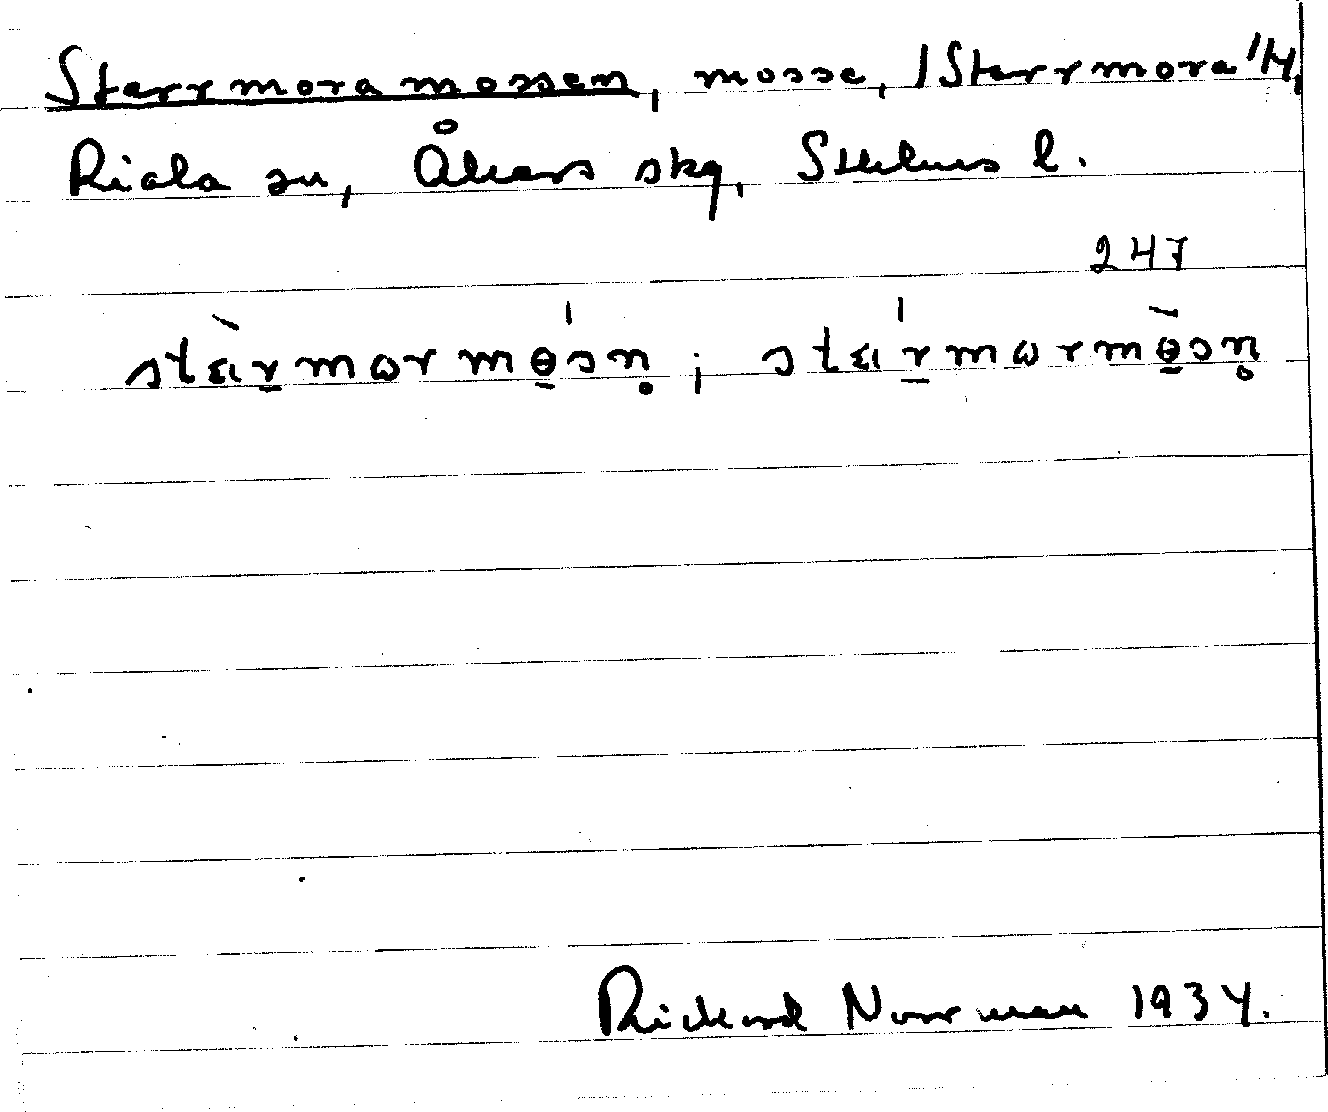 Starrmoramossen, mosse, /Starrmora 1/4,
Riala sn, Åkers skg, Sthlms l.
247
stæ̀r̠marmɵ̠́sn̥; stǽr̠marmɵ̠̀sn̥
Rickard Norrman 1934.